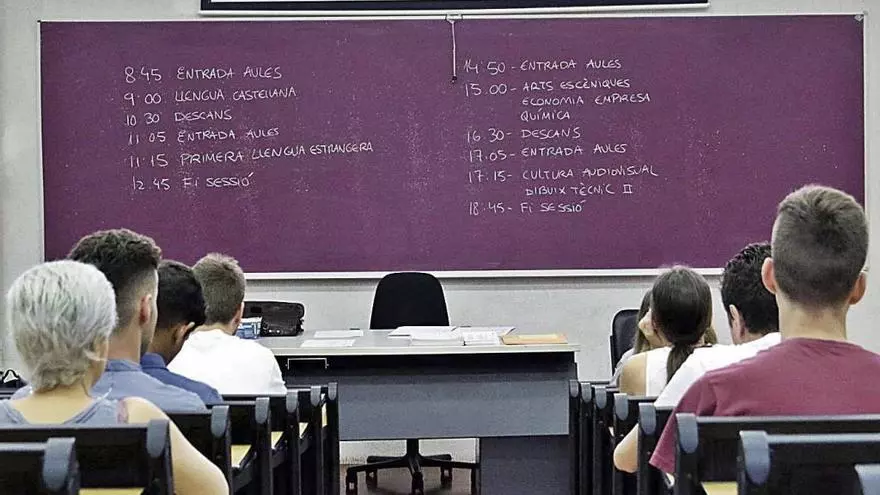 8:45 ENTRADA AULES
9:00 LLENGUA CASTELLANA
10:30 DESCANS
11:05 ENTRADA AULES
11:15 PRIMERA LLENGUA ESTRANGERA
12:45 FI SESSIÓ
14:50 - ENTRADA AULES
15:00 - ARTS ESCÈNIQUES
ECONOMIA EMPRESA
QUÍMICA
16:30 - DESCANS
17:05 - ENTRADA AULES
17:15 - CULTURA AUDIOVISUAL
DIBUIX TÈCNIC II
18:45 - FI SESSIÓ